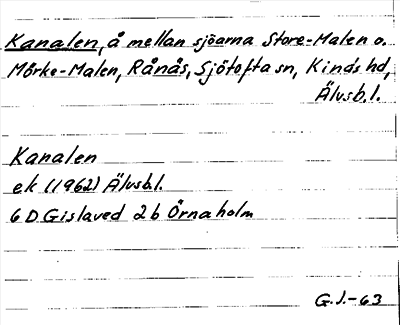 Kanalen, å mellan sjöarna Store-Malen o.
Mörke-Malen, Rånås, Sjötofta sn, Kinds hd,
Älvsb.l.
Kanalen
ek (1962) Älvsb.l.
6 D Gislaved 2b Örnaholm
G.J.-63